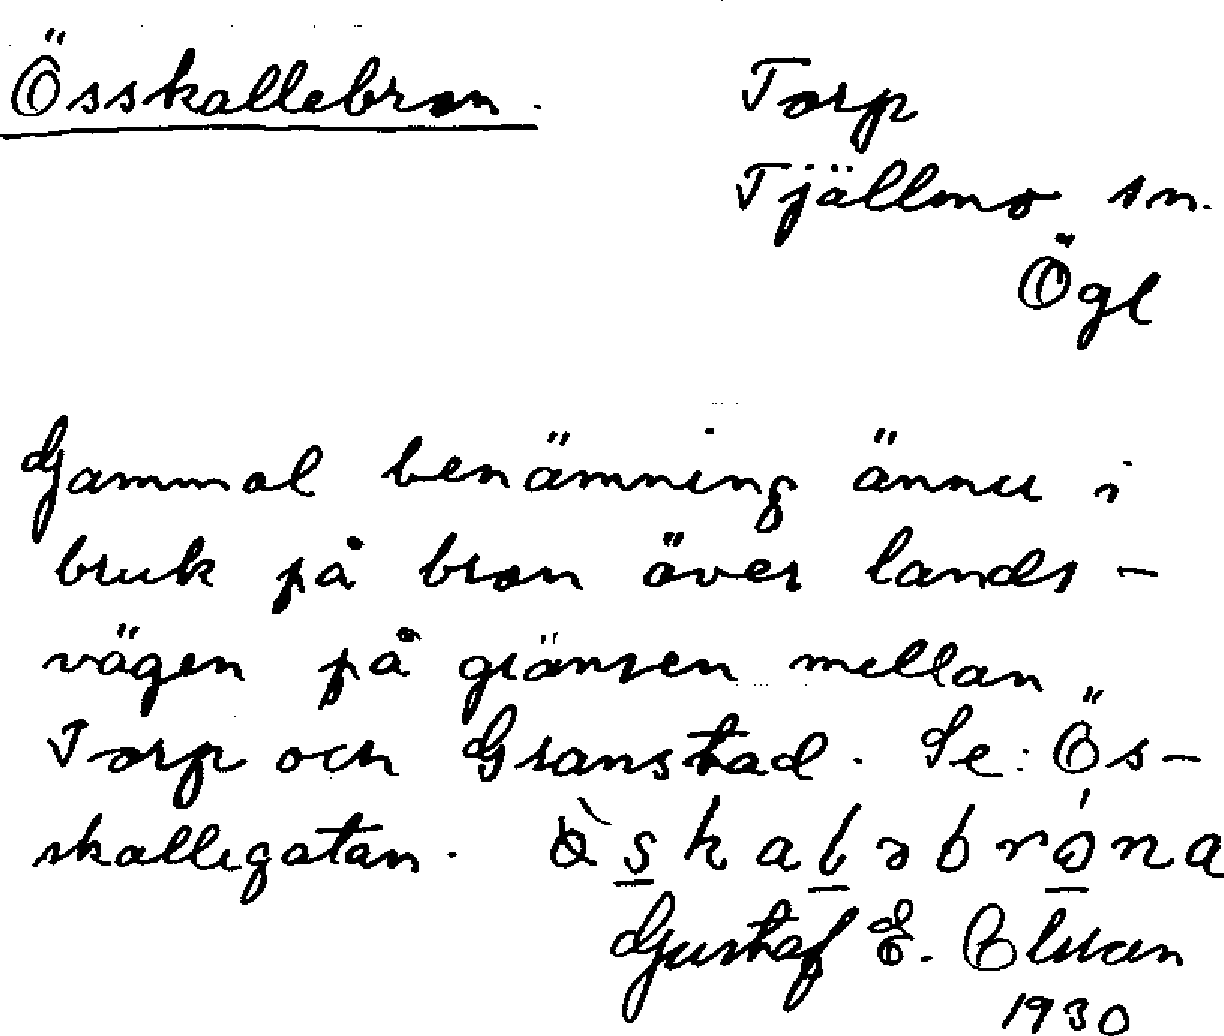 Össkallebron.
Torp
Tjällmo sn.
Ögl
Gammal benämning ännu i
bruk på bron över lands-
vägen på gränsen mellan
Torp och Granstad. Se: Ös-
skallegatan.
Gustaf E. Olsson
1930